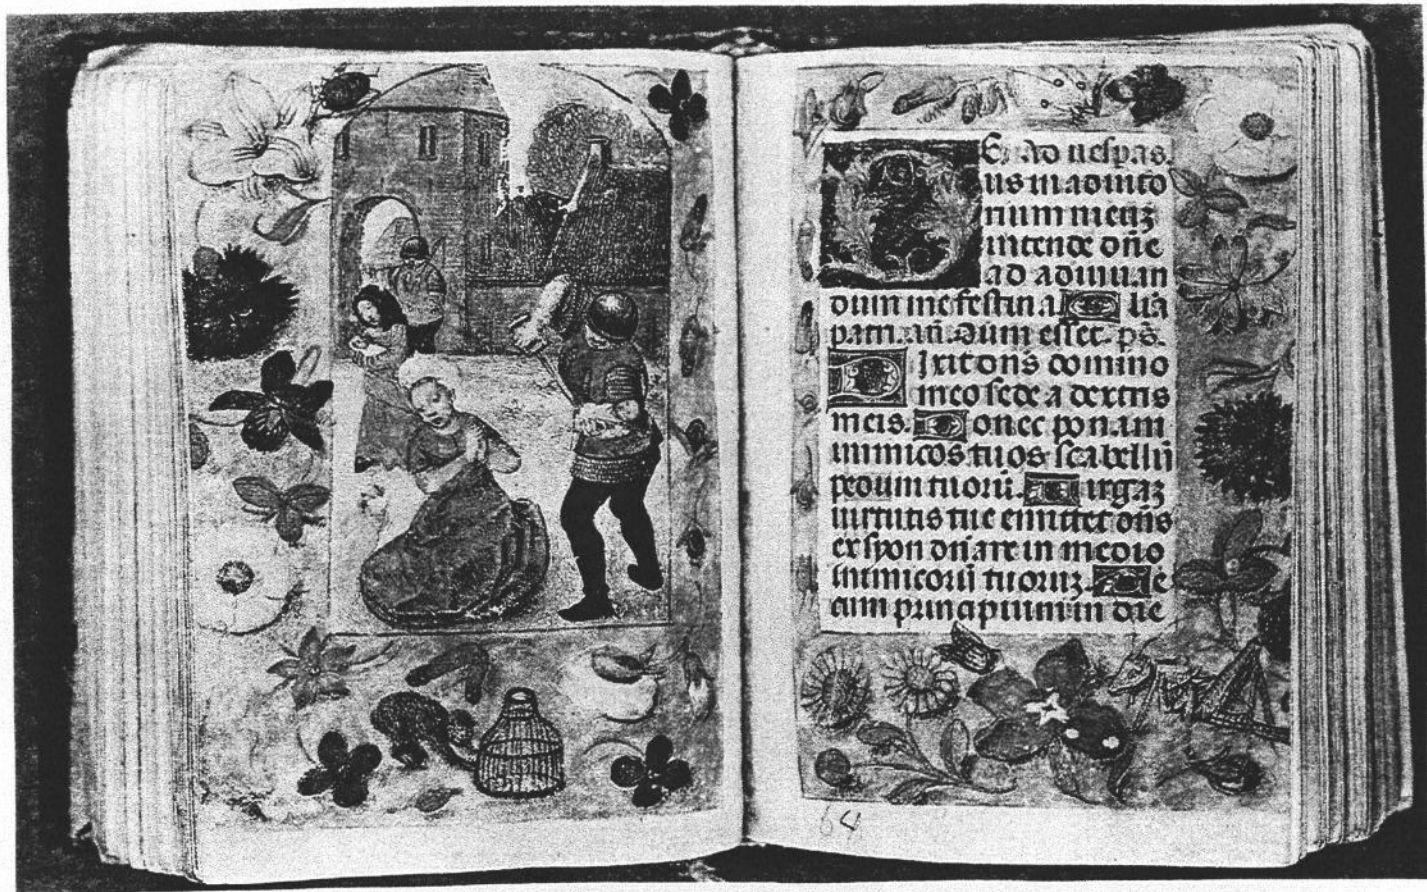 Ad vespas.
us in adiuto
rium meuz
intende dn̄e
ad adiuuan
dum me festina Glia
patri. an̄. Dum esset. ps̄.
Dixit dn̄s domino
meo sede a dextris
meis. Donec ponam
inimicos tuos scabellū
pedum tuorū. Uirgaz
uirtutis tue emittet dn̄s
ex syon dn̄are in medio
inimicorū tuoruz. Te
cum principium in die
64